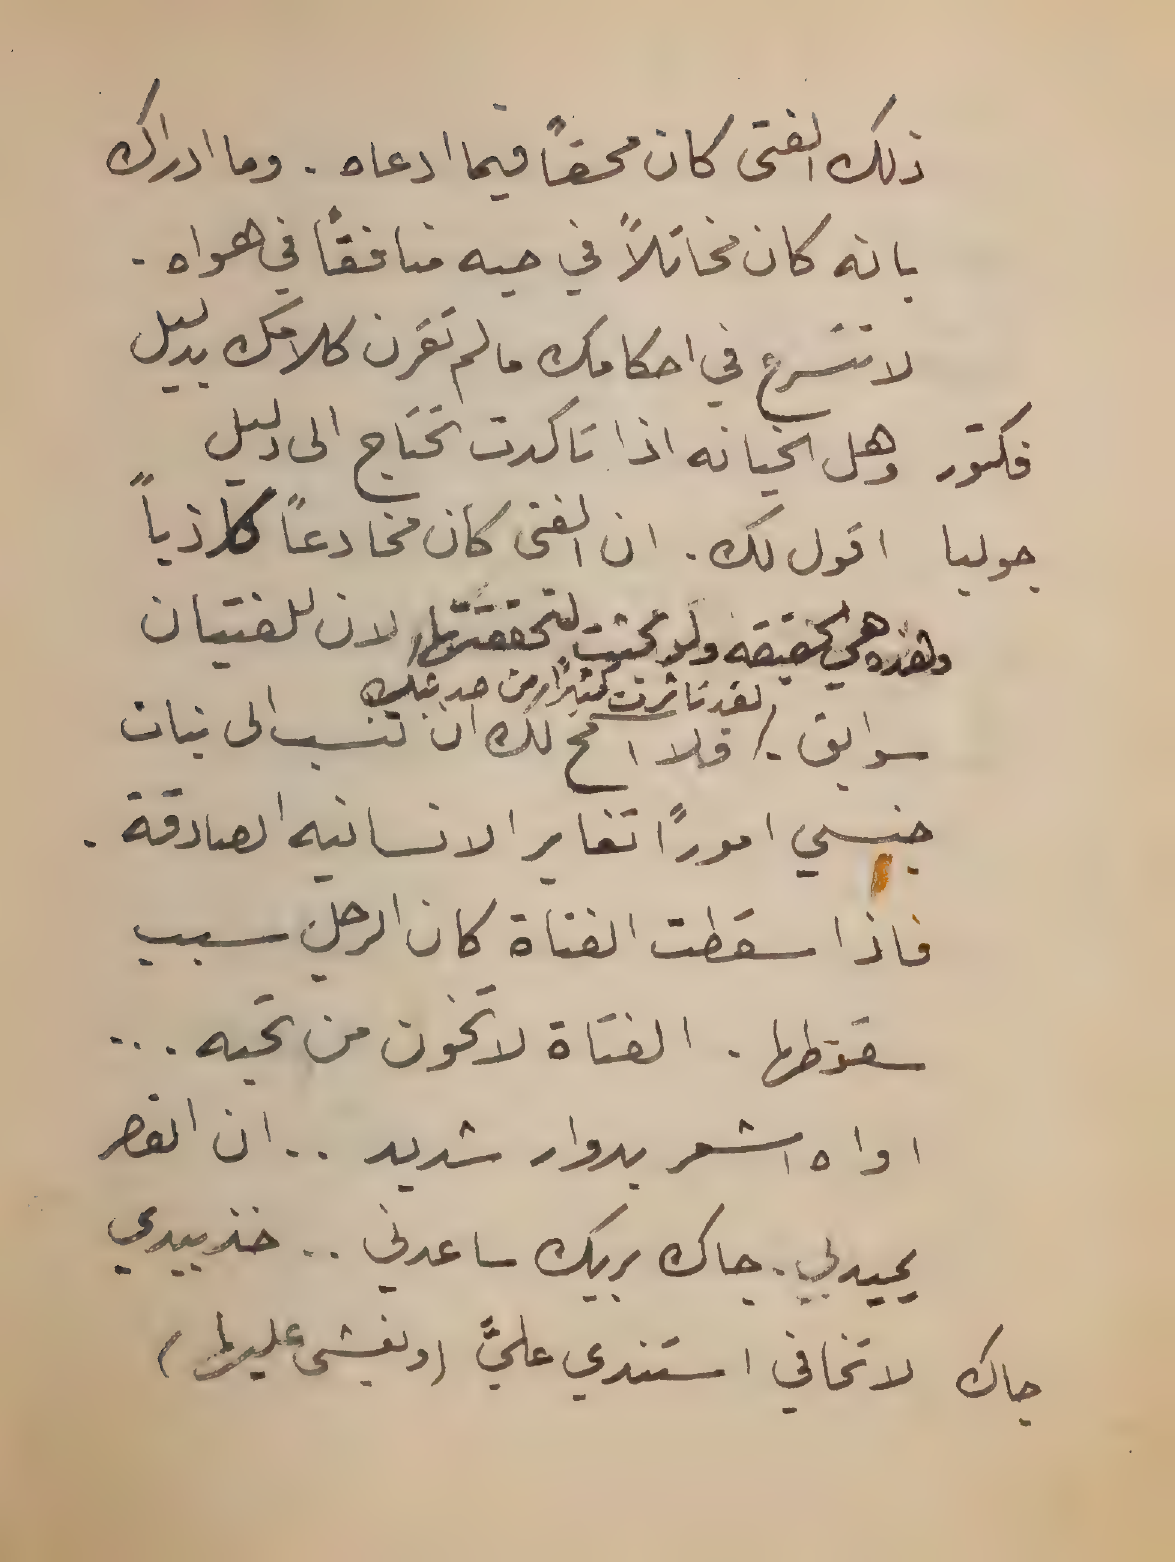 ذلك الفتى كان محقاً فيما ادعاه . وما ادراك
بانه كان مخاتلاً في حبه منافقاً في هواه .
لا تتسرع في احكامك ما لم تقرن كلامك بدليل
فكتور وهل الخيانه اذا تاكدت تحتاج الى دليل
جوليا اقول لك . ان الفتى كان مخادعاً كاذباً
وهذه هي الحقيقه ولو بحثت لتحققتها لان للفتيان
لقد تاثرت كثيراً من حديثك
سوابق . فلا اسمح لك ان تنسب الى بنات
جنسي اموراً تغاير الانسانيه الصادقة .
فاذا سقطت الفتاة كان الرجل سبب
سقوطها . الفتاة لا تخون من تحبه . . .
اواه اشعر بدوار شديد . . ان القصر
يميد بي . جاك بربك ساعدني . . خذ بيدي
جاك لا تخافي استندي عليَّ (ويغشى عليها)